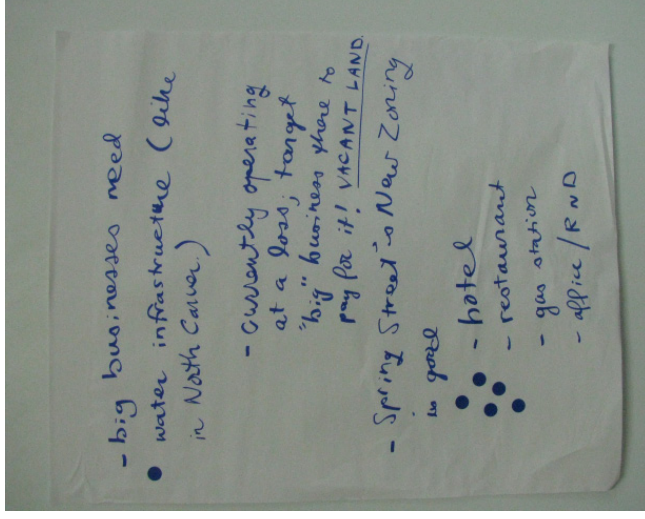 - big businesses need
● water infrastructure (like
in North Carver.)
- currently operating
at a loss; target
"big" business there to
pay for it! VACANT LAND.
- Spring Street's New Zoning
is good
- hotel
- restaurant
- gas station
- office/RND